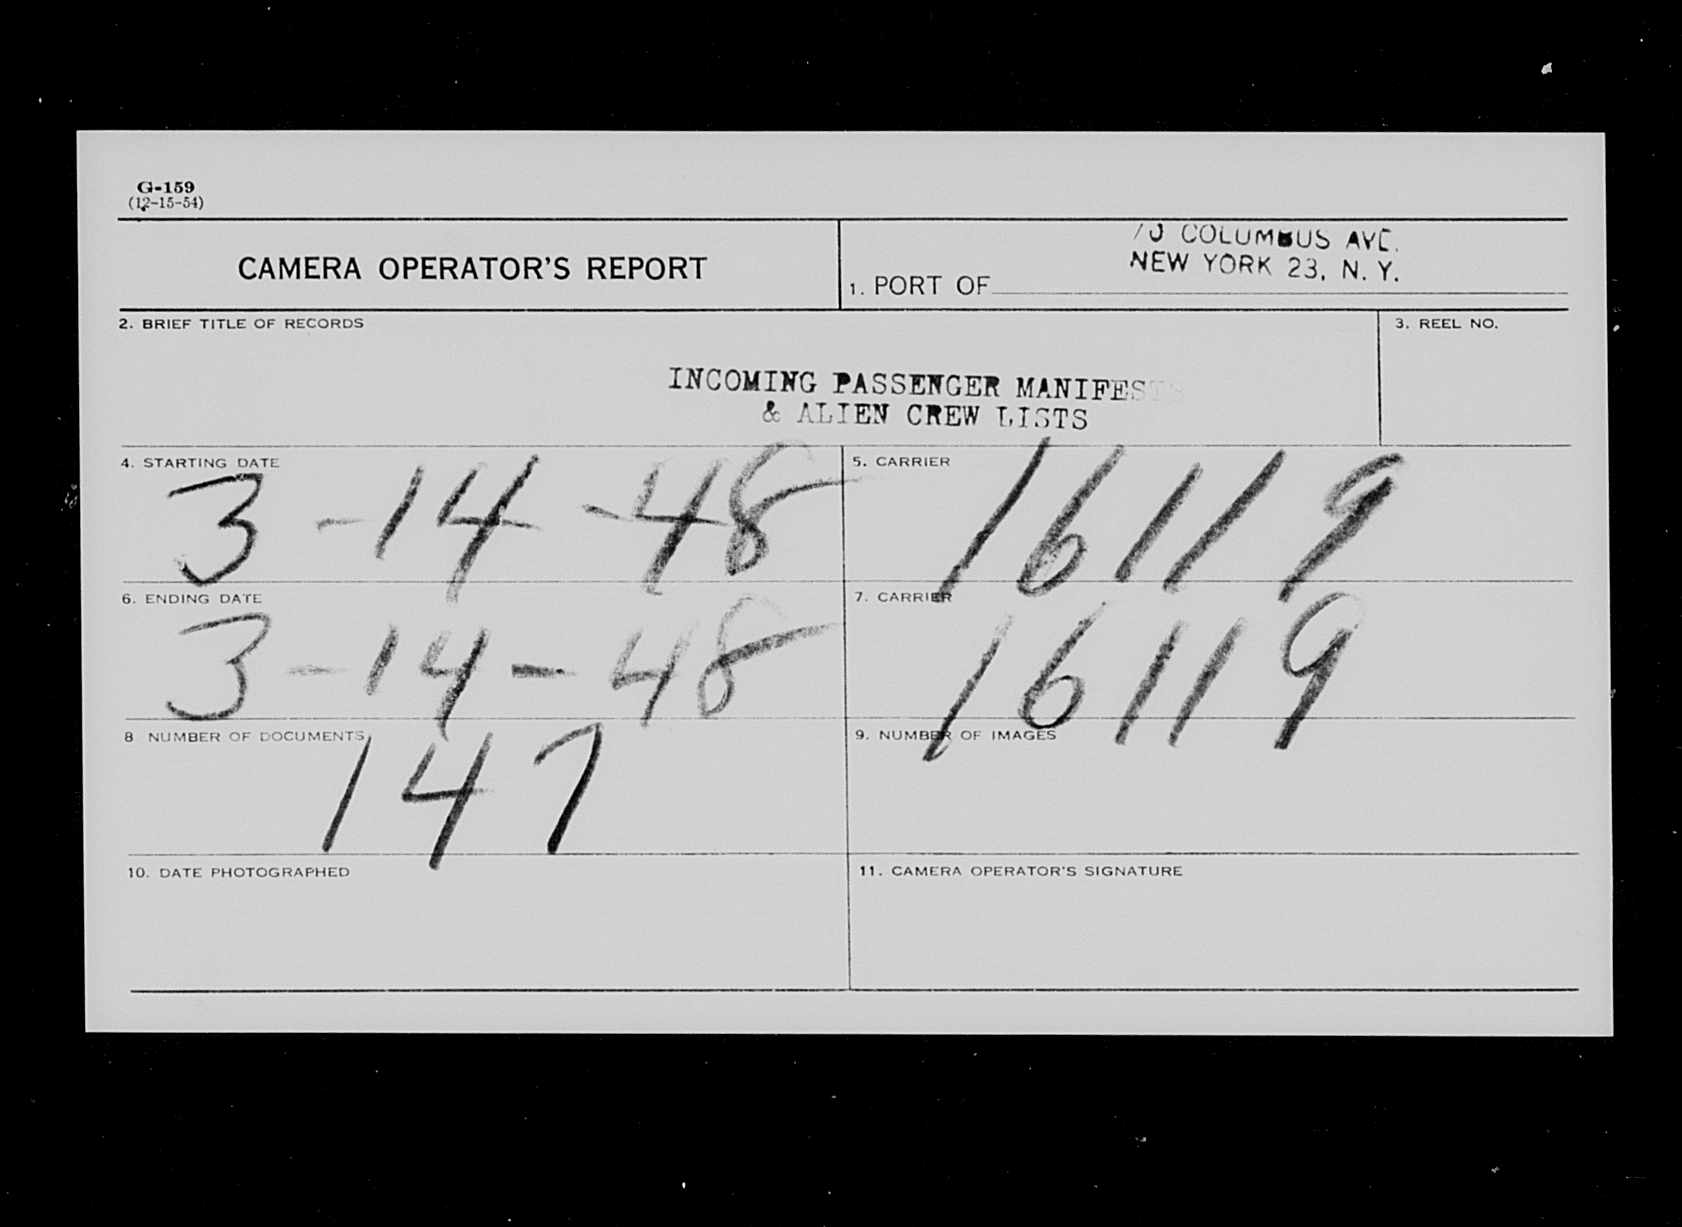 G-159
(12-15-54)
CAMERA OPERATOR'S REPORT
70 COLUMBUS AVE.
NEW YORK 23, N. Y.
1. PORT OF
2. BRIEF TITLE OF RECORDS
3. REEL NO.
INCOMING PASSENGER MANIFESTS
& ALIEN CREW LISTS
4. STARTING DATE
3-14-48
5. CARRIER
16119
6. ENDING DATE
3-14-48
7. CARRIER
16119
8 NUMBER OF DOCUMENTS
147
9. NUMBER OF IMAGES
10. DATE PHOTOGRAPHED
11. CAMERA OPERATOR'S SIGNATURE